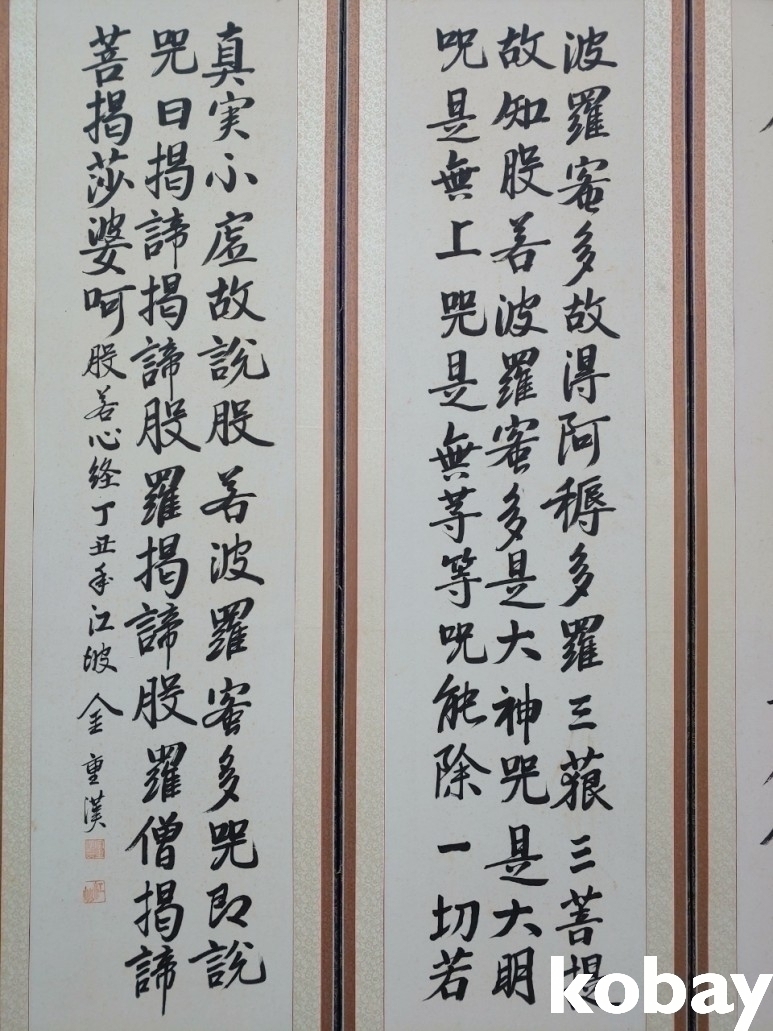 波羅蜜多故得阿耨多羅三藐三菩提
故知般若波羅蜜多是大神咒是大明
呪是無上咒是無等等呪能除一切苦
真実不虛故說般若波羅蜜多咒即說
咒曰揭諦揭諦般羅揭諦般羅僧揭諦
菩揭莎婆呵 般若心経丁丑年江坡 金重漢
kobay